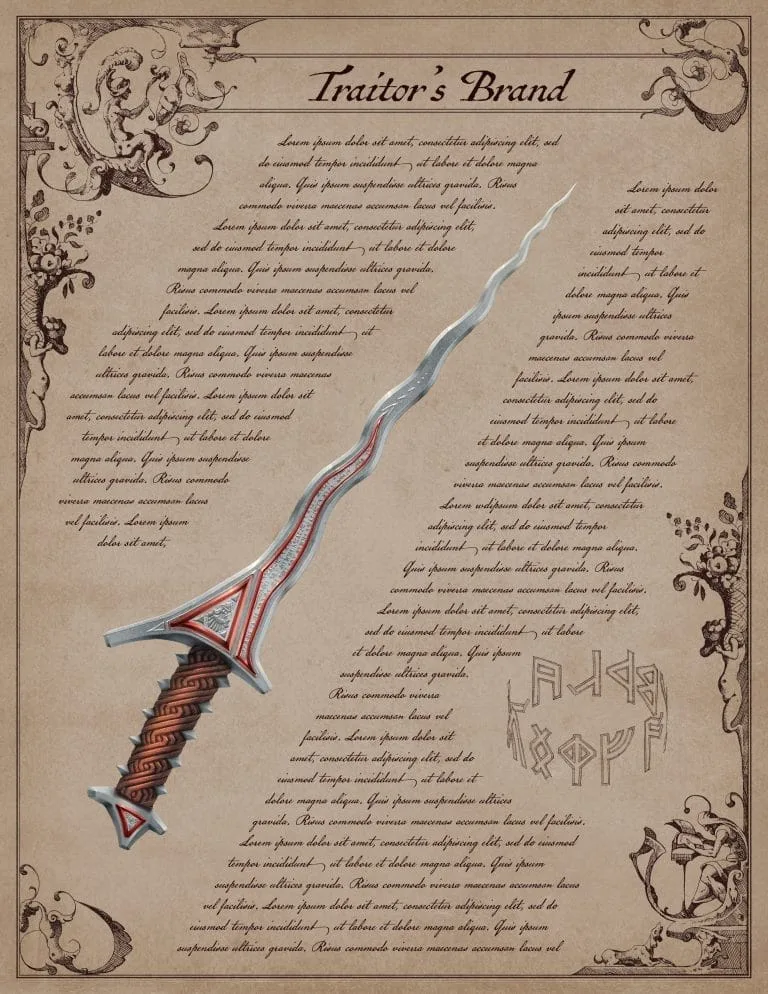 Traitor's Brand
Lorem ipsum dolor sit amet, consectetur adipiscing elit, sed
do eiusmod tempor incididunt ut labore et dolore magna
aliqua. Quis ipsum suspendisse ultrices gravida. Risus
commodo viverra maecenas accumsan lacus vel facilisis.
Lorem ipsum dolor sit amet, consectetur adipiscing elit,
sed do eiusmod tempor incididunt ut labore et dolore
magna aliqua. Quis ipsum suspendisse ultrices gravida.
Risus commodo viverra maecenas accumsan lacus vel
facilisis. Lorem ipsum dolor sit amet, consectetur
adipiscing elit, sed do eiusmod tempor incididunt ut
labore et dolore magna aliqua. Quis ipsum suspendisse
ultrices gravida. Risus commodo viverra maecenas
accumsan lacus vel facilisis. Lorem ipsum dolor sit
amet, consectetur adipiscing elit, sed do eiusmod
tempor incididunt ut labore et dolore
magna aliqua. Quis ipsum suspendisse
ultrices gravida. Risus commodo
viverra maecenas accumsan lacus
vel facilisis. Lorem ipsum
dolor sit amet,
Lorem ipsum dolor
sit amet, consectetur
adipiscing elit, sed do
eiusmod tempor
incididunt ut labore et
dolore magna aliqua. Quis
ipsum suspendisse ultrices
gravida. Risus commodo viverra
maecenas accumsan lacus vel
facilisis. Lorem ipsum dolor sit amet,
consectetur adipiscing elit, sed do
eiusmod tempor incididunt ut labore
et dolore magna aliqua. Quis ipsum
suspendisse ultrices gravida. Risus commodo
viverra maecenas accumsan lacus vel facilisis.
Lorem wdipsum dolor sit amet, consectetur
adipiscing elit, sed do eiusmod tempor
incididunt ut labore et dolore magna aliqua.
Quis ipsum suspendisse ultrices gravida. Risus
commodo viverra maecenas accumsan lacus vel facilisis.
Lorem ipsum dolor sit amet, consectetur adipiscing elit,
sed do eiusmod tempor incididunt ut labore
et dolore magna aliqua. Quis ipsum
suspendisse ultrices gravida.
Risus commodo viverra
maecenas accumsan lacus vel
facilisis. Lorem ipsum dolor sit
amet, consectetur adipiscing elit, sed do
eiusmod tempor incididunt ut labore et
dolore magna aliqua. Quis ipsum suspendisse ultrices
gravida. Risus commodo viverra maecenas accumsan lacus vel facilisis.
Lorem ipsum dolor sit amet, consectetur adipiscing elit, sed do eiusmod
tempor incididunt ut labore et dolore magna aliqua. Quis ipsum
suspendisse ultrices gravida. Risus commodo viverra maecenas accumsan lacus
vel facilisis. Lorem ipsum dolor sit amet, consectetur adipiscing elit, sed do
eiusmod tempor incididunt ut labore et dolore magna aliqua. Quis ipsum
suspendisse ultrices gravida. Risus commodo viverra maecenas accumsan lacus vel